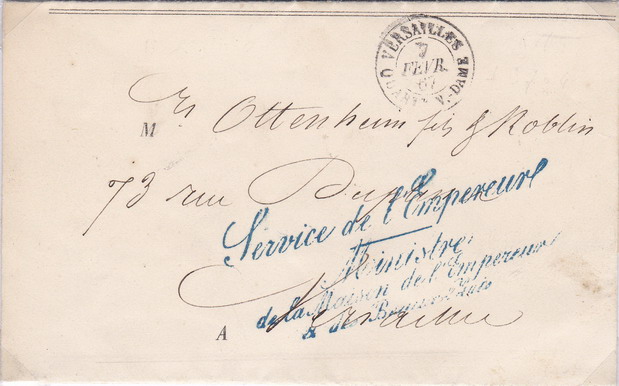 VERSAILLES QUARTIER N.-DAME
7
FEVR.
67
M rs Ottenheim fils & Roblin
73 rue
Service de l'Empereur
Ministre
de la Maison de l'Empereur
& des Beaux-Arts
A Versailles